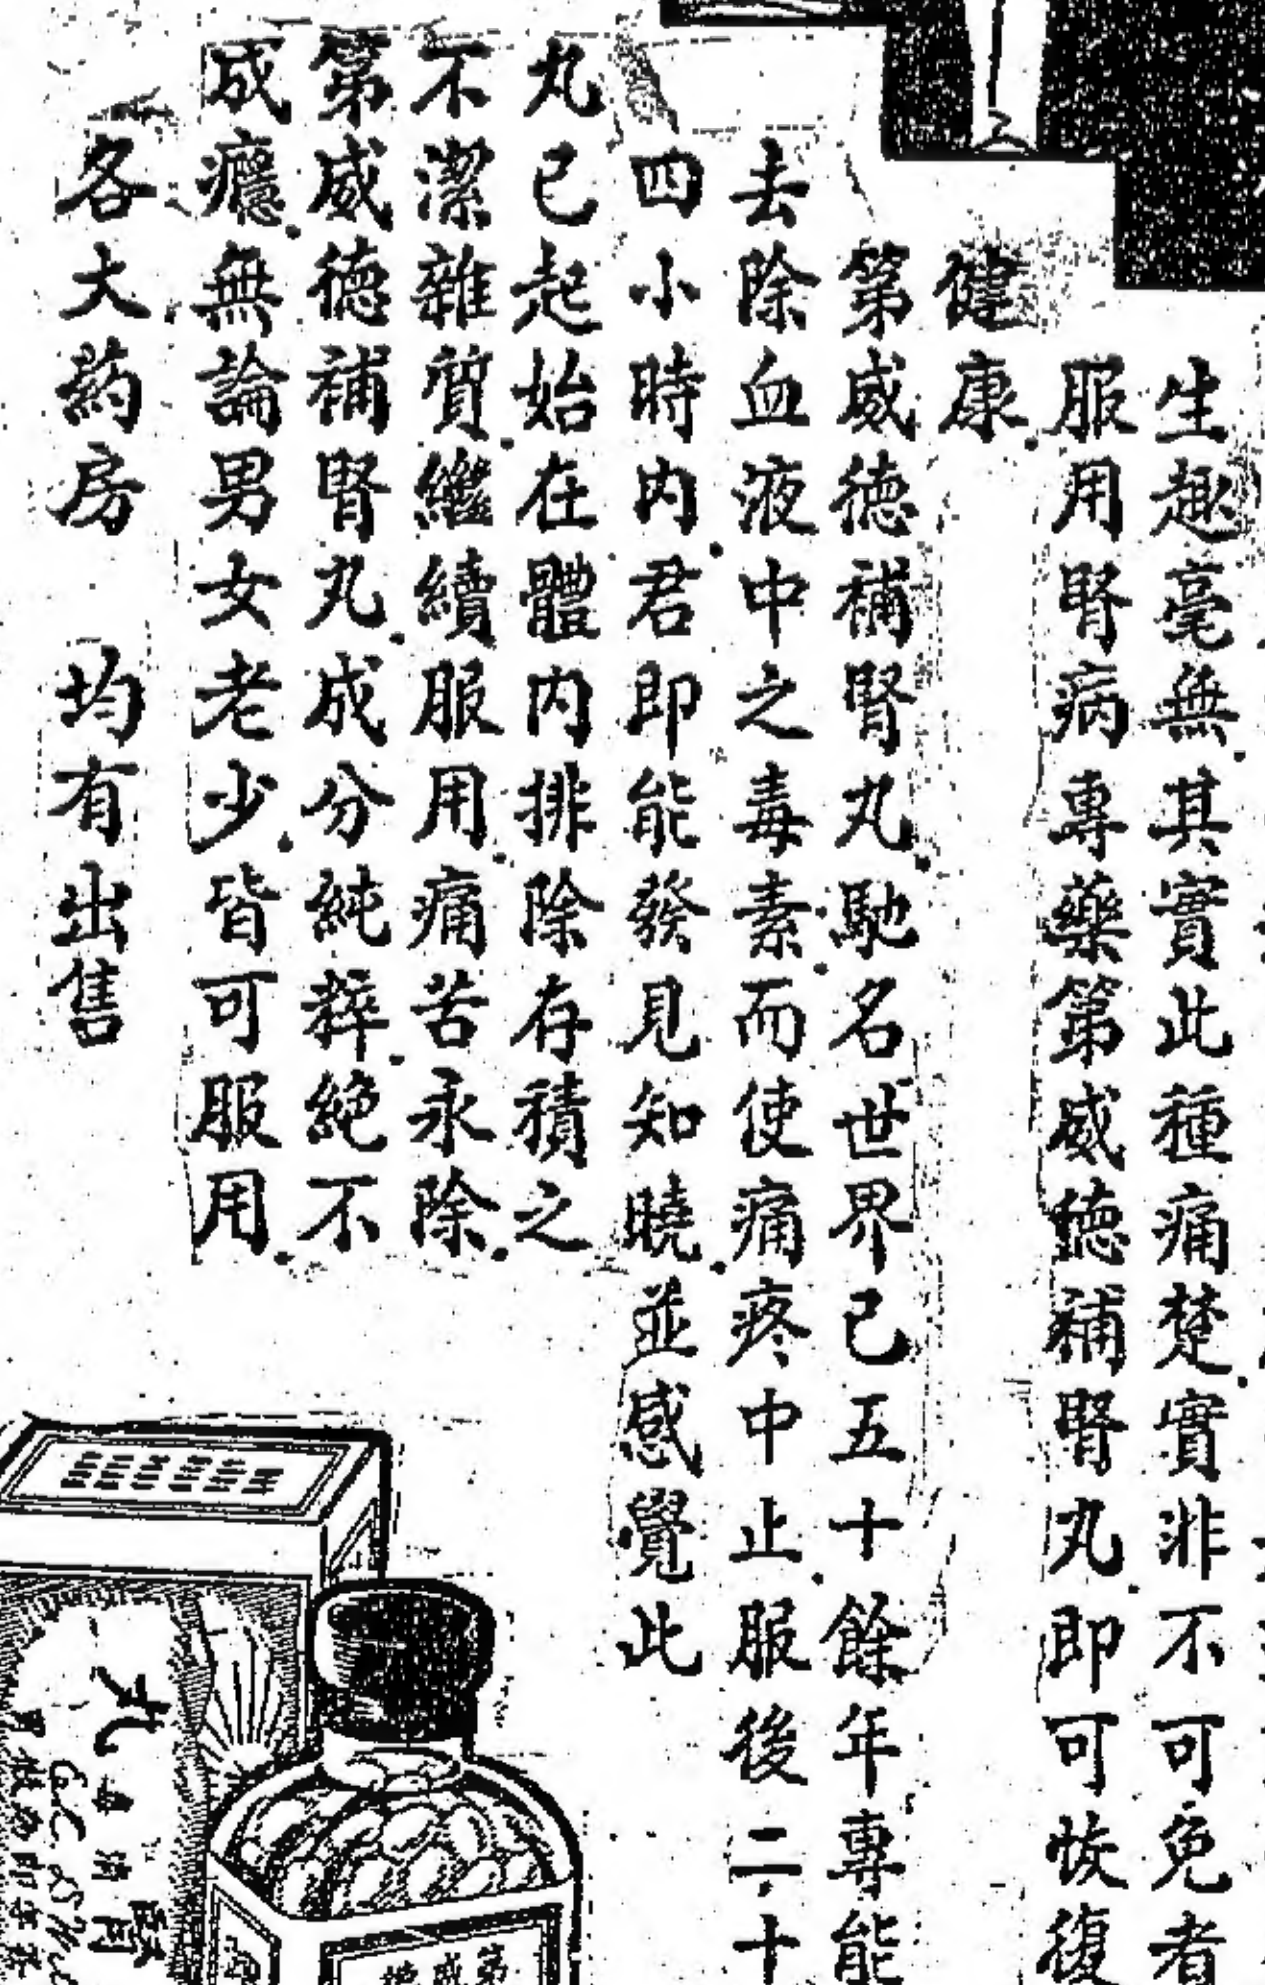 生趣毫無.其實此種痛楚.實非不可免者
服用腎病專藥第威德補腎丸.即可恢復
健康.
第威德補腎丸.馳名世界已五十餘年專能
去除血液中之毒素.而使痛疼中止.服後二十
四小時內.君即能發見知曉.並感覺此
丸已起始在體內排除存積之
不潔雜質.繼續服用.痛苦永除.
第威德補腎丸.成分純粹.絕不
成癮.無論男女老少.皆可服用.
各大药房 均有出售
丸